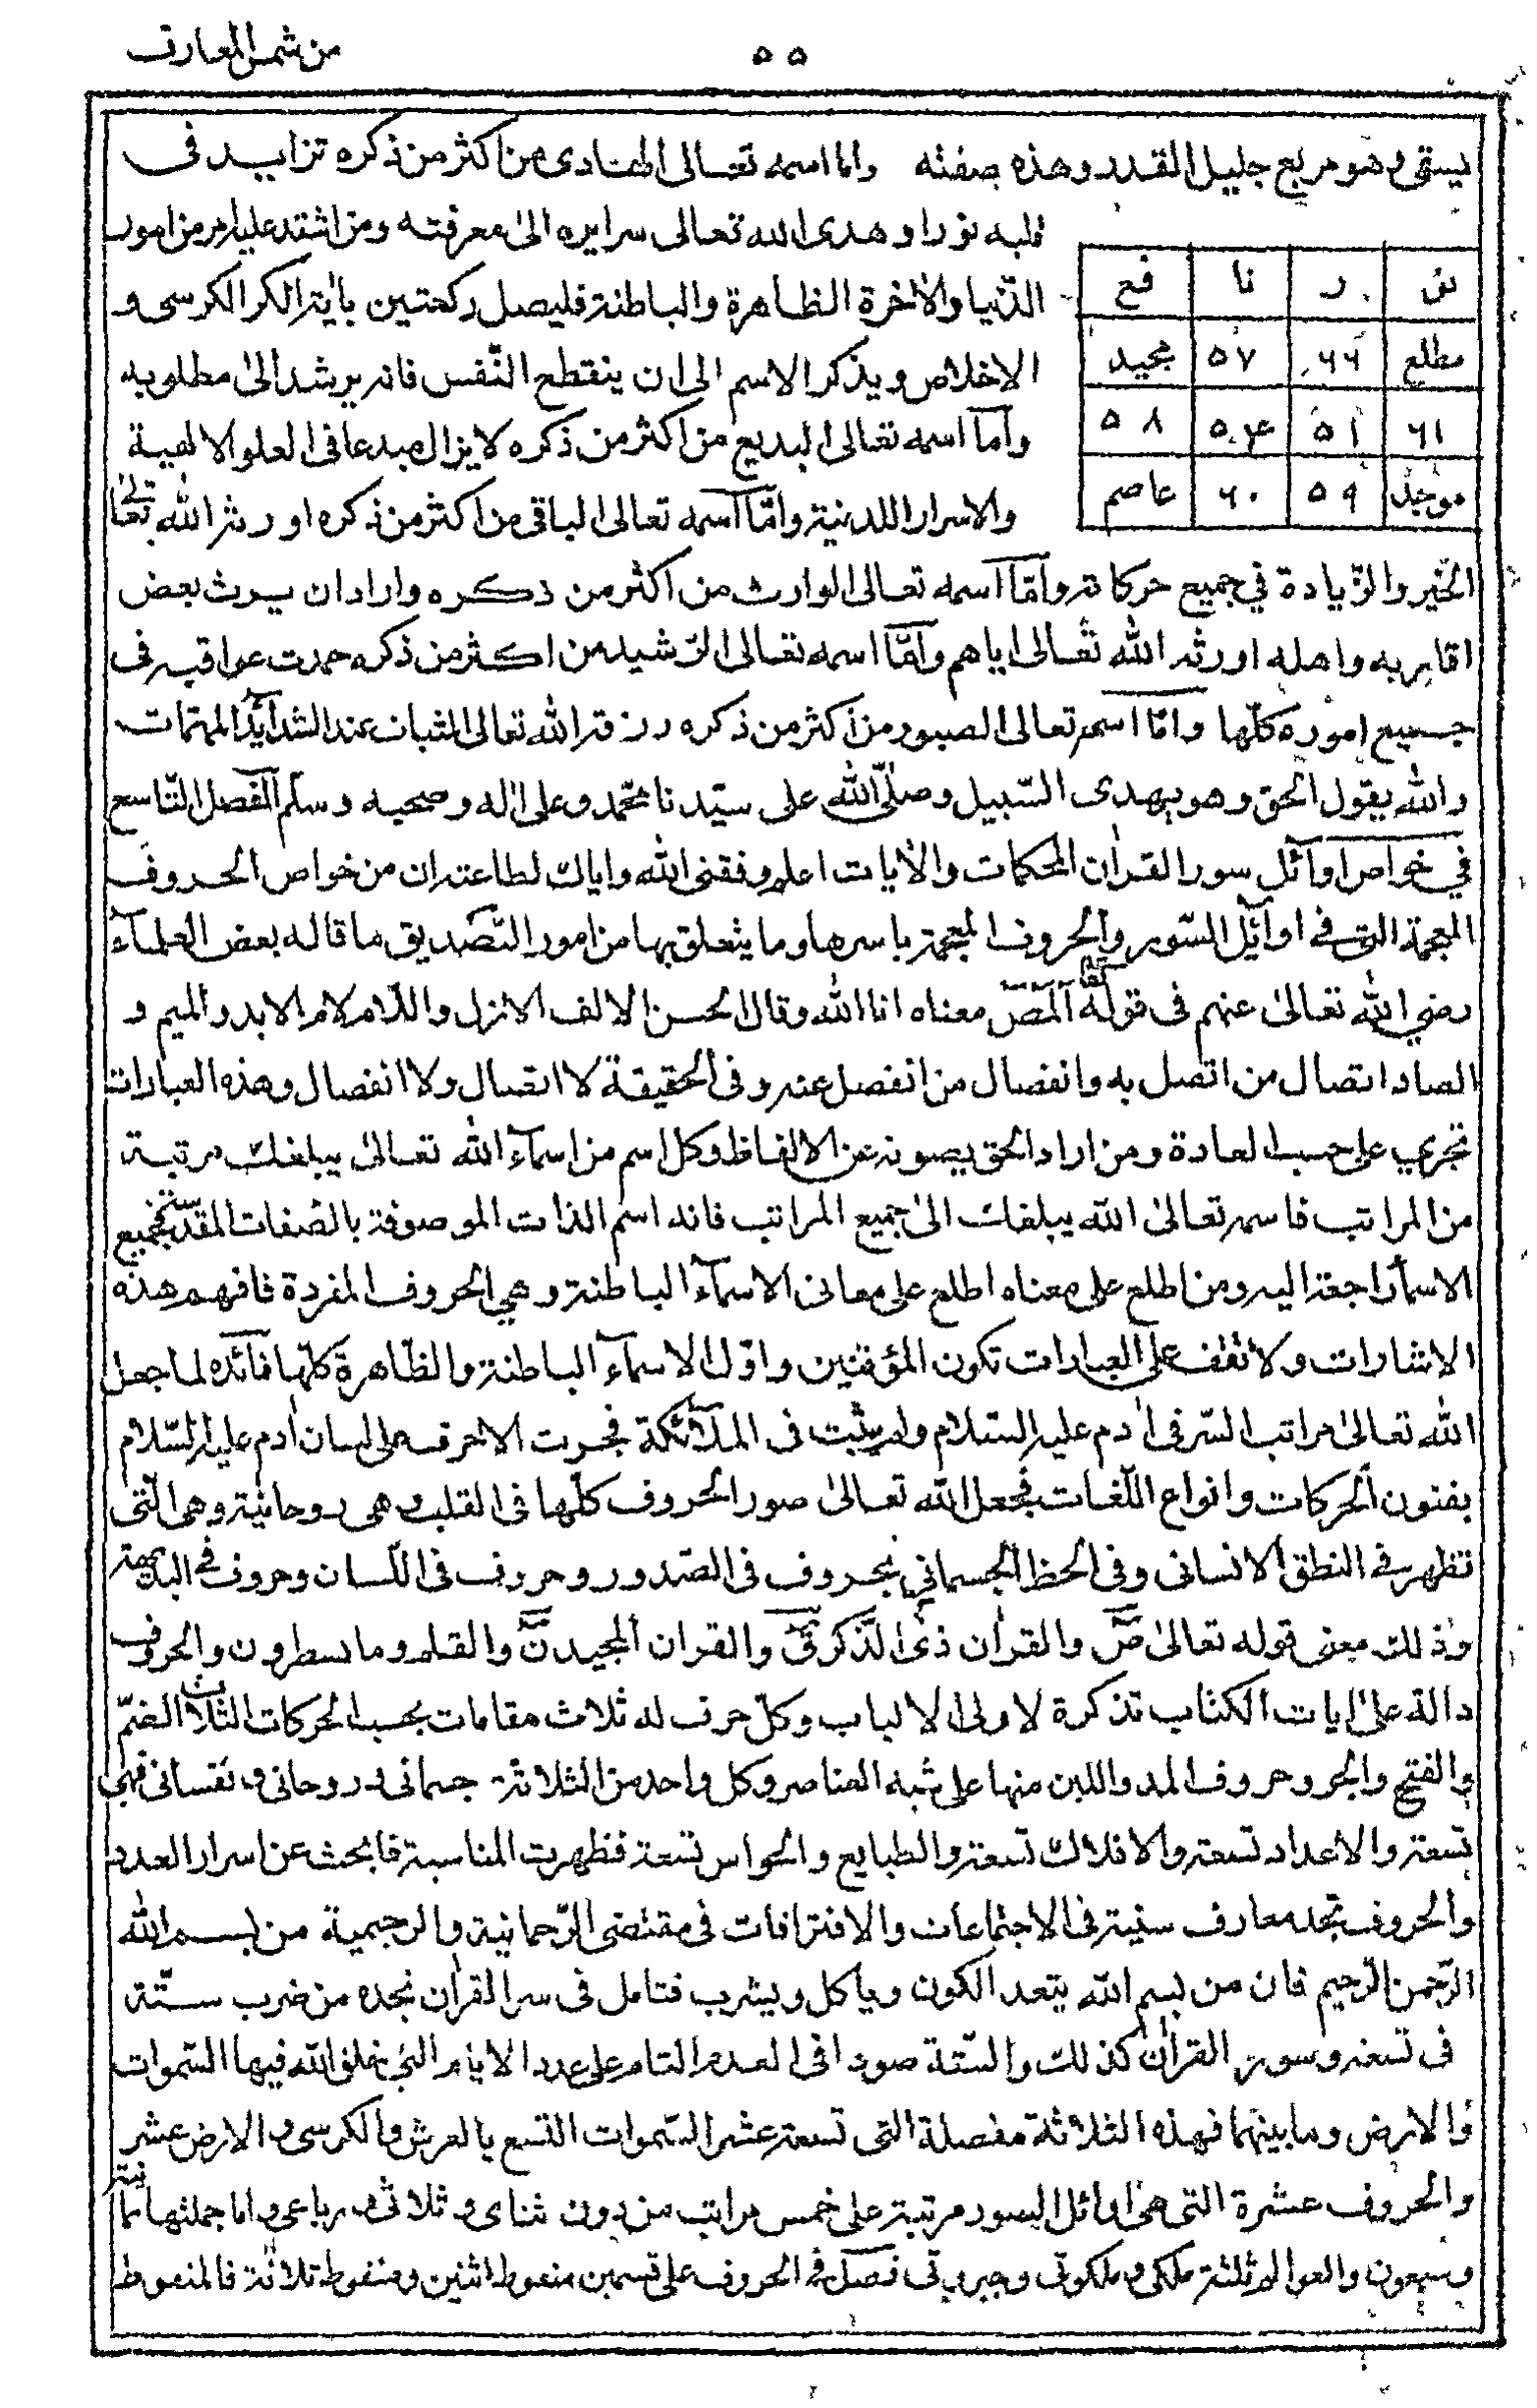 من شمس المعارف
٥٥
يستقى وهو مربع جليل القدر وهذه صفته واما اسمه تعالى الهادى من اكثر من ذكره تزايد فى
قلبه نورا وهدى الله تعالى سرايره الى معرفته ومن اشتد عليه امر من امور
الدّنيا والاخرة الظاهرة والباطنة فليصل ركعتين باية الكرسى و
الاخلاص ويذكر الاسم الى ان ينقطع النّفس فانه يرشد الى مطلوبه
وامّا اسمه تعالى البديع من اكثر من ذكره لا يزال مبدعا فى العلو الالهية
والاسرار اللدنية وامّا اسمه تعالى الباقى من اكثر من ذكره اورثه الله تعالى
فع | نا | ر | ش
مجيد | ٥٧ | ٦٦ | مطلع
٥٨ | ٥٤ | ٥١ | ٦١
عاصم | ٦٠ | ٥٩ | موجد
الخير والزّيادة في جميع حركاته وامّا اسمه تعالى الوارث من اكثر من ذكره واراد ان يرث بعض
اقاربه واهله اورثه الله تعالى اياهم وامّا اسمه تعالى الرّشيد من اكثر من ذكره حمدت عواقبه فى
جميع اموره كلّها وامّا اسمه تعالى الصبور من اكثر من ذكره رزقه الله تعالى الثبات عند الشدائد المهمّات
والله يقول الحق وهو يهدى السّبيل وصلّى الله على سيّدنا محمّد وعلى اله وصحبه وسلّم الفصل التّاسع
في خواص اوآئل سور القران المحكمات والايات اعلم وفقنى الله واياك لطاعته ان من خواص الحروف
المعجمة التى فى اوآئل السّور والحروف المعجمة باسرها وما يتعلق بها من امور التّصديق ما قاله بعض العلمآء
رضي الله تعالى عنهم فى قوله تعالى المص معناه انا الله وقال الحسن الالف الازل واللّام لام الابد والميم و
الصاد اتصال من اتصل به وانفصال من انفصل عنه وفى الحقيقة لا اتصال ولا انفصال وهذه العبارات
تجري على حسب العادة ومن اراد الحق يصونه عن الالفاظ وكل اسم من اسمآء الله تعالى يبلغك مرتبة
من المراتب فاسمه تعالى الله يبلغك الى جميع المراتب فانه اسم الذات الموصوفة بالصّفات المقدّسة بجميع
الاسمآء راجعة اليه ومن اطلع على معناه اطلع على معانى الاسمآء الباطنة وهي الحروف المفردة فافهم هذه
الاشارات ولا تقف على العبارات تكون المؤقنين واوّل الاسمآء الباطنة والظّاهرة كلّها فآئده لما جعل
الله تعالى مراتب السّر فى ادم عليه السّلام ولم يثبت فى الملآئكة فجرت الاحرف على لسان ادم عليه السّلام
بفنون الحركات وانواع اللّغات فجعل الله تعالى صور الحروف كلّها فى القلب وهى روحانية وهى الّتى
تظهر فى النطق الانسانى وفى الحظ الجسمانى بحروف فى الصّدور وحروف فى اللّسان وحروف فى البديهة
وذلك معنى قوله تعالى صّ والقران ذى الذّكر قّ والقران المجيد نّ والقلم وما يسطرون والحروف
دالة على ايات الكتاب تذكرة لاولى الالباب وكلّ حرف له ثلاث مقامات بحسب الحركات الثلاث الضّمّ
والفتح والجر وحروف المد واللين منها على شبه العناصر وكل واحد من الثلاثة جسمانى وروحانى ونفسانى فهى
تسعة والاعداد تسعة والافلاك تسعة والطبايع والحواس تسعة فظهرت المناسبة فابحث عن اسرار العدد
والحروف تجد معارف سنية فى الاجتماعات والافتراقات فى مقتضى الرّحمانية والرحيمية من بسم الله
الرّحمن الرّحيم فان من بسم الله يتعد الكون وياكل ويشرب فتامل فى سر القران تجده من ضرب ستّة
فى تسعة وسور القران كذلك والسّتة صورا فى العدد التام على عدد الايام التى خلق الله فيها السّموات
والارض وما بينهما فهذه الثلاثة مفصلة التى تسعة عشر السّموات التسع بالعرش والكرسى والارض عشر
والحروف عشرة التى هى اوائل السور مرتبة على خمس مراتب من دون ثناى وثلاثى ورباعى واما جملتها ثمانية
وسبعون والعوالم ثلثة ملكى وملكوتى وجبروتى فصل فى الحروف على قسمين منقوط اثنين ومنقوط ثلاثة فالمنقوط